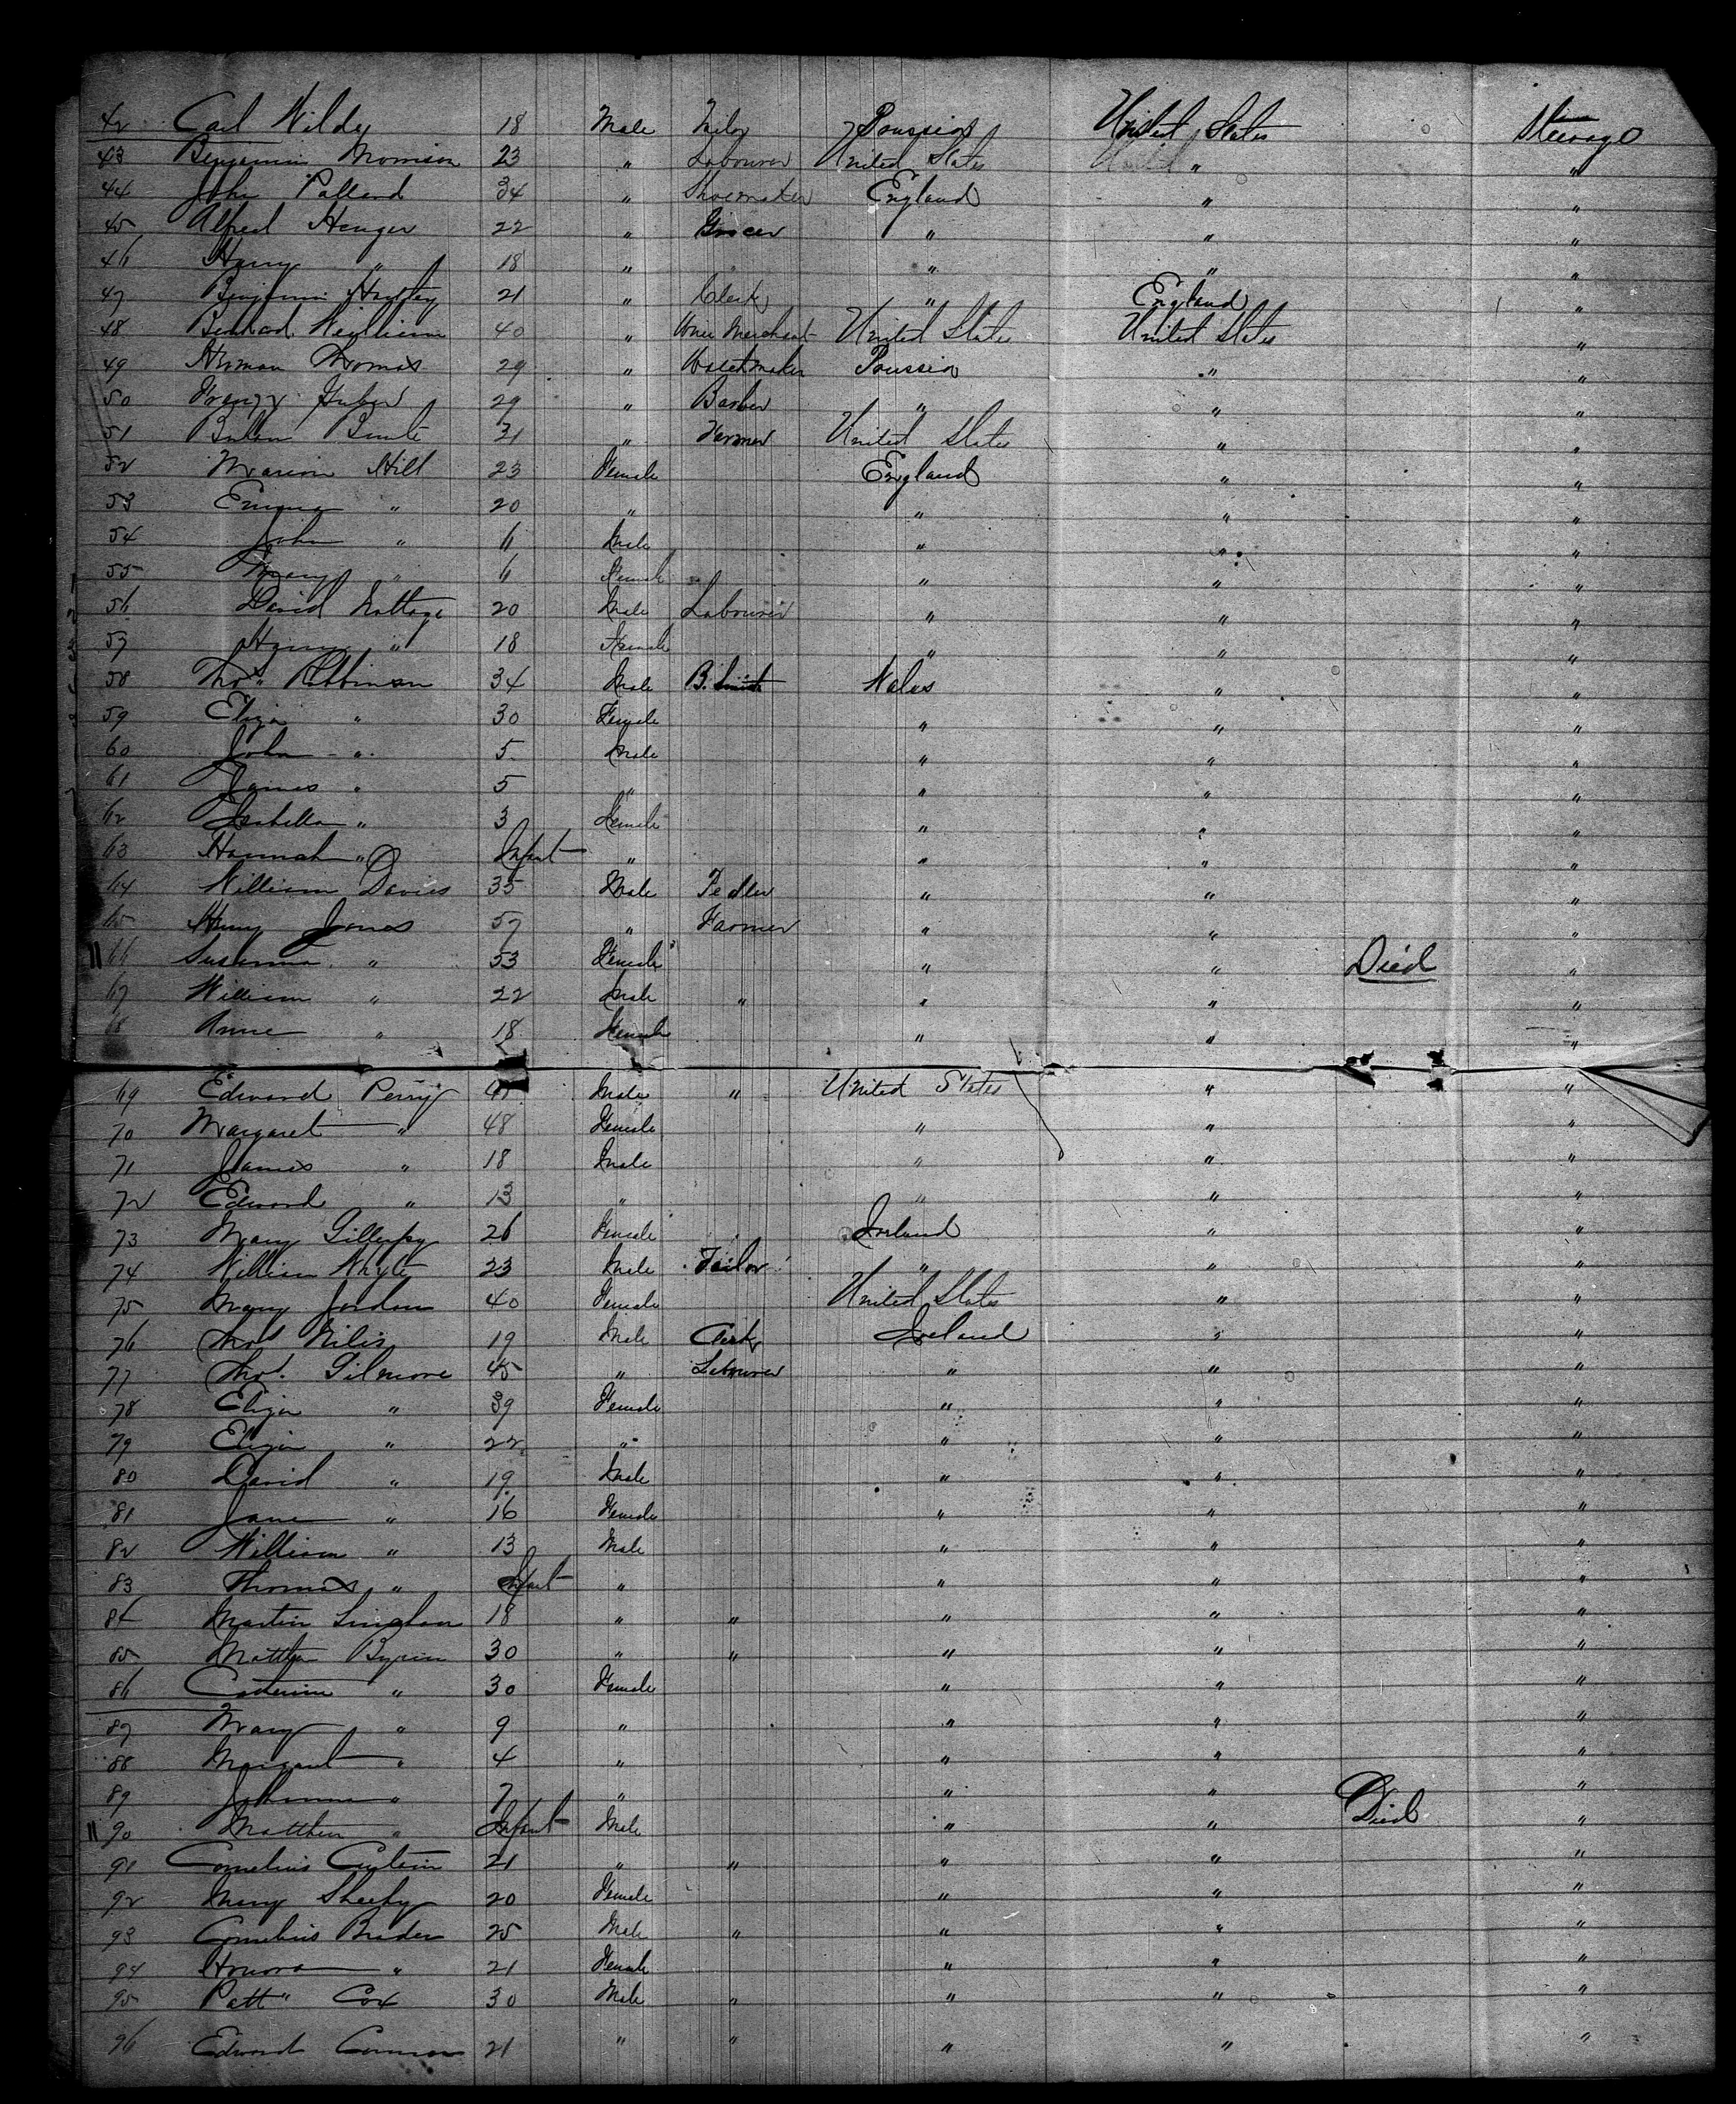 42 Carl Wilde 18 Male Tailor Prussia United States Steerage
43 Benjamin Morrison 23 " Labourer United States United " "
44 John Pallard 34 " Shoemaker England " "
45 Alfred Henger 22 " Grocer " " "
46 Harry " 18 " " " "
47 Benjamin Hartley 21 " Clerk " England "
48 William 40 " Wine Merchant United States United States "
49 Herman Thomas 29 " Watchmaker Prussia " "
50 Franz Huber 29 " Barber " " "
51 31 " Farmer United States " "
52 Marion Hill 23 Female England " "
53 Emma " 20 " " " "
54 John " 11 Male " " "
55 Mary " 6 Female " " "
56 David Nottage 20 Male Labourer " " "
57 " 18 Female " " "
58 Thos. Robbinson 34 Male B. Smith Wales " "
59 Eliza " 30 Female " " "
60 John " 5 Male " " "
61 James " 5 " " " "
62 Isabella " 3 Female " " "
63 Hannah " Infant " " " "
64 William Davies 35 Male Pedler " " "
65 Henry Jones 57 " Farmer " " "
66 Susanna " 53 Female " " Died "
67 William " 22 Male " " " "
68 Anne " 18 Female " " "
69 Edward Perry Male " United States " "
70 Margaret " 48 Female " " "
71 James " 18 Male " " "
72 Edward " 13 " " " "
73 Mary Gillespy 26 Female Ireland " "
74 William Whyte 23 Male Tailor " " "
75 Mary Jordan 40 Female United States " "
76 Thos Nilis 19 Male Clerk Ireland " "
77 Thos. Gilmore 45 " Labourer " " "
78 Eliza " 39 Female " " "
79 Eliza " 22 " " " "
80 David " 19 Male " " "
81 Jane " 16 Female " " "
82 William " 13 Male " " "
83 Thomas " Infant " " " "
84 Martin 18 " " " " "
85 Matthew Byrine 30 " " " " "
86 Catherine " 30 Female " " "
87 Mary " 9 " " " "
88 Margaret " 4 " " " "
89 Johanna " 7 " " " "
90 Matthew " Infant Male " " Died "
91 Cornelius Curtain 21 " " " " "
92 Mary Sheehy 20 Female " " "
93 Cornelius Brader 25 Male " " " "
94 Honora " 21 Female " " "
95 Patt" Cox 30 Male " " " "
96 Edward Connor 21 " " " " "